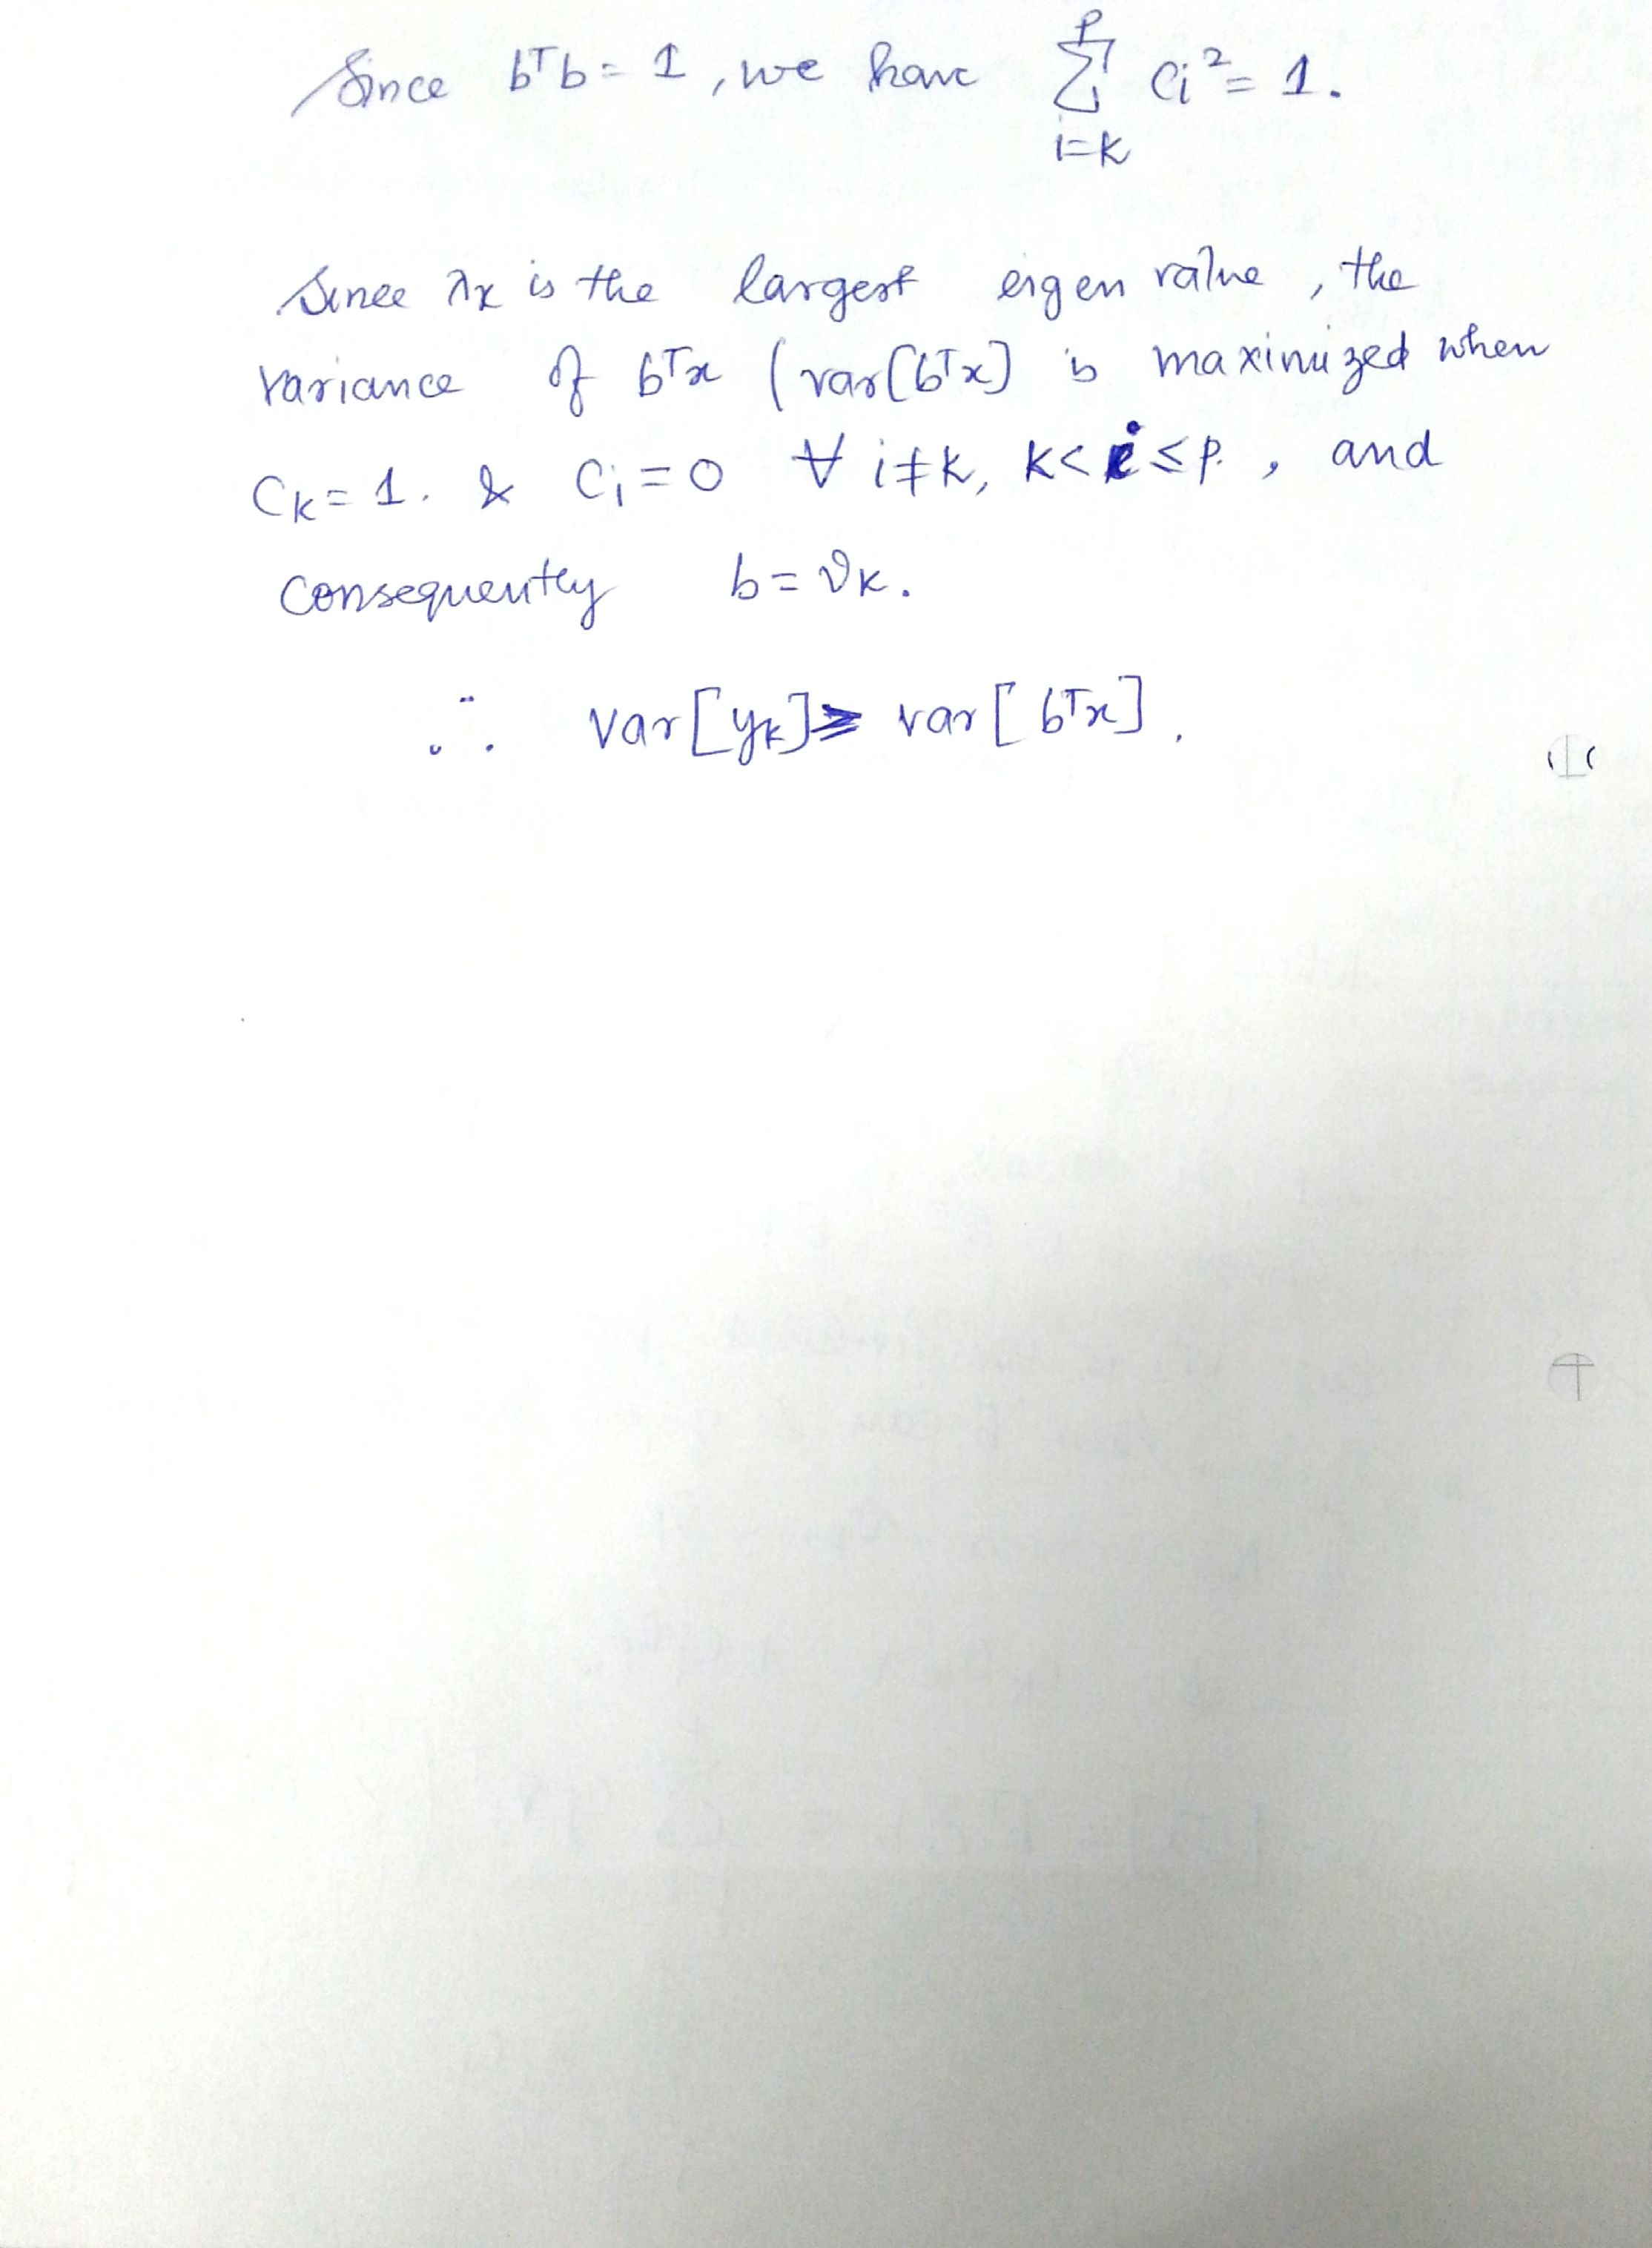 Since bᵀb = 1, we have ∑_{i=k}^{p} Cᵢ² = 1.
Since λk is the largest eigen value, the
variance of bᵀx (var[bᵀx] is maximized when
Ck = 1. & Cᵢ = 0 ∀ i ≠ k, k < i ≤ p. , and
consequently b = νk.
∴ var[yk] ≥ var[bᵀx].